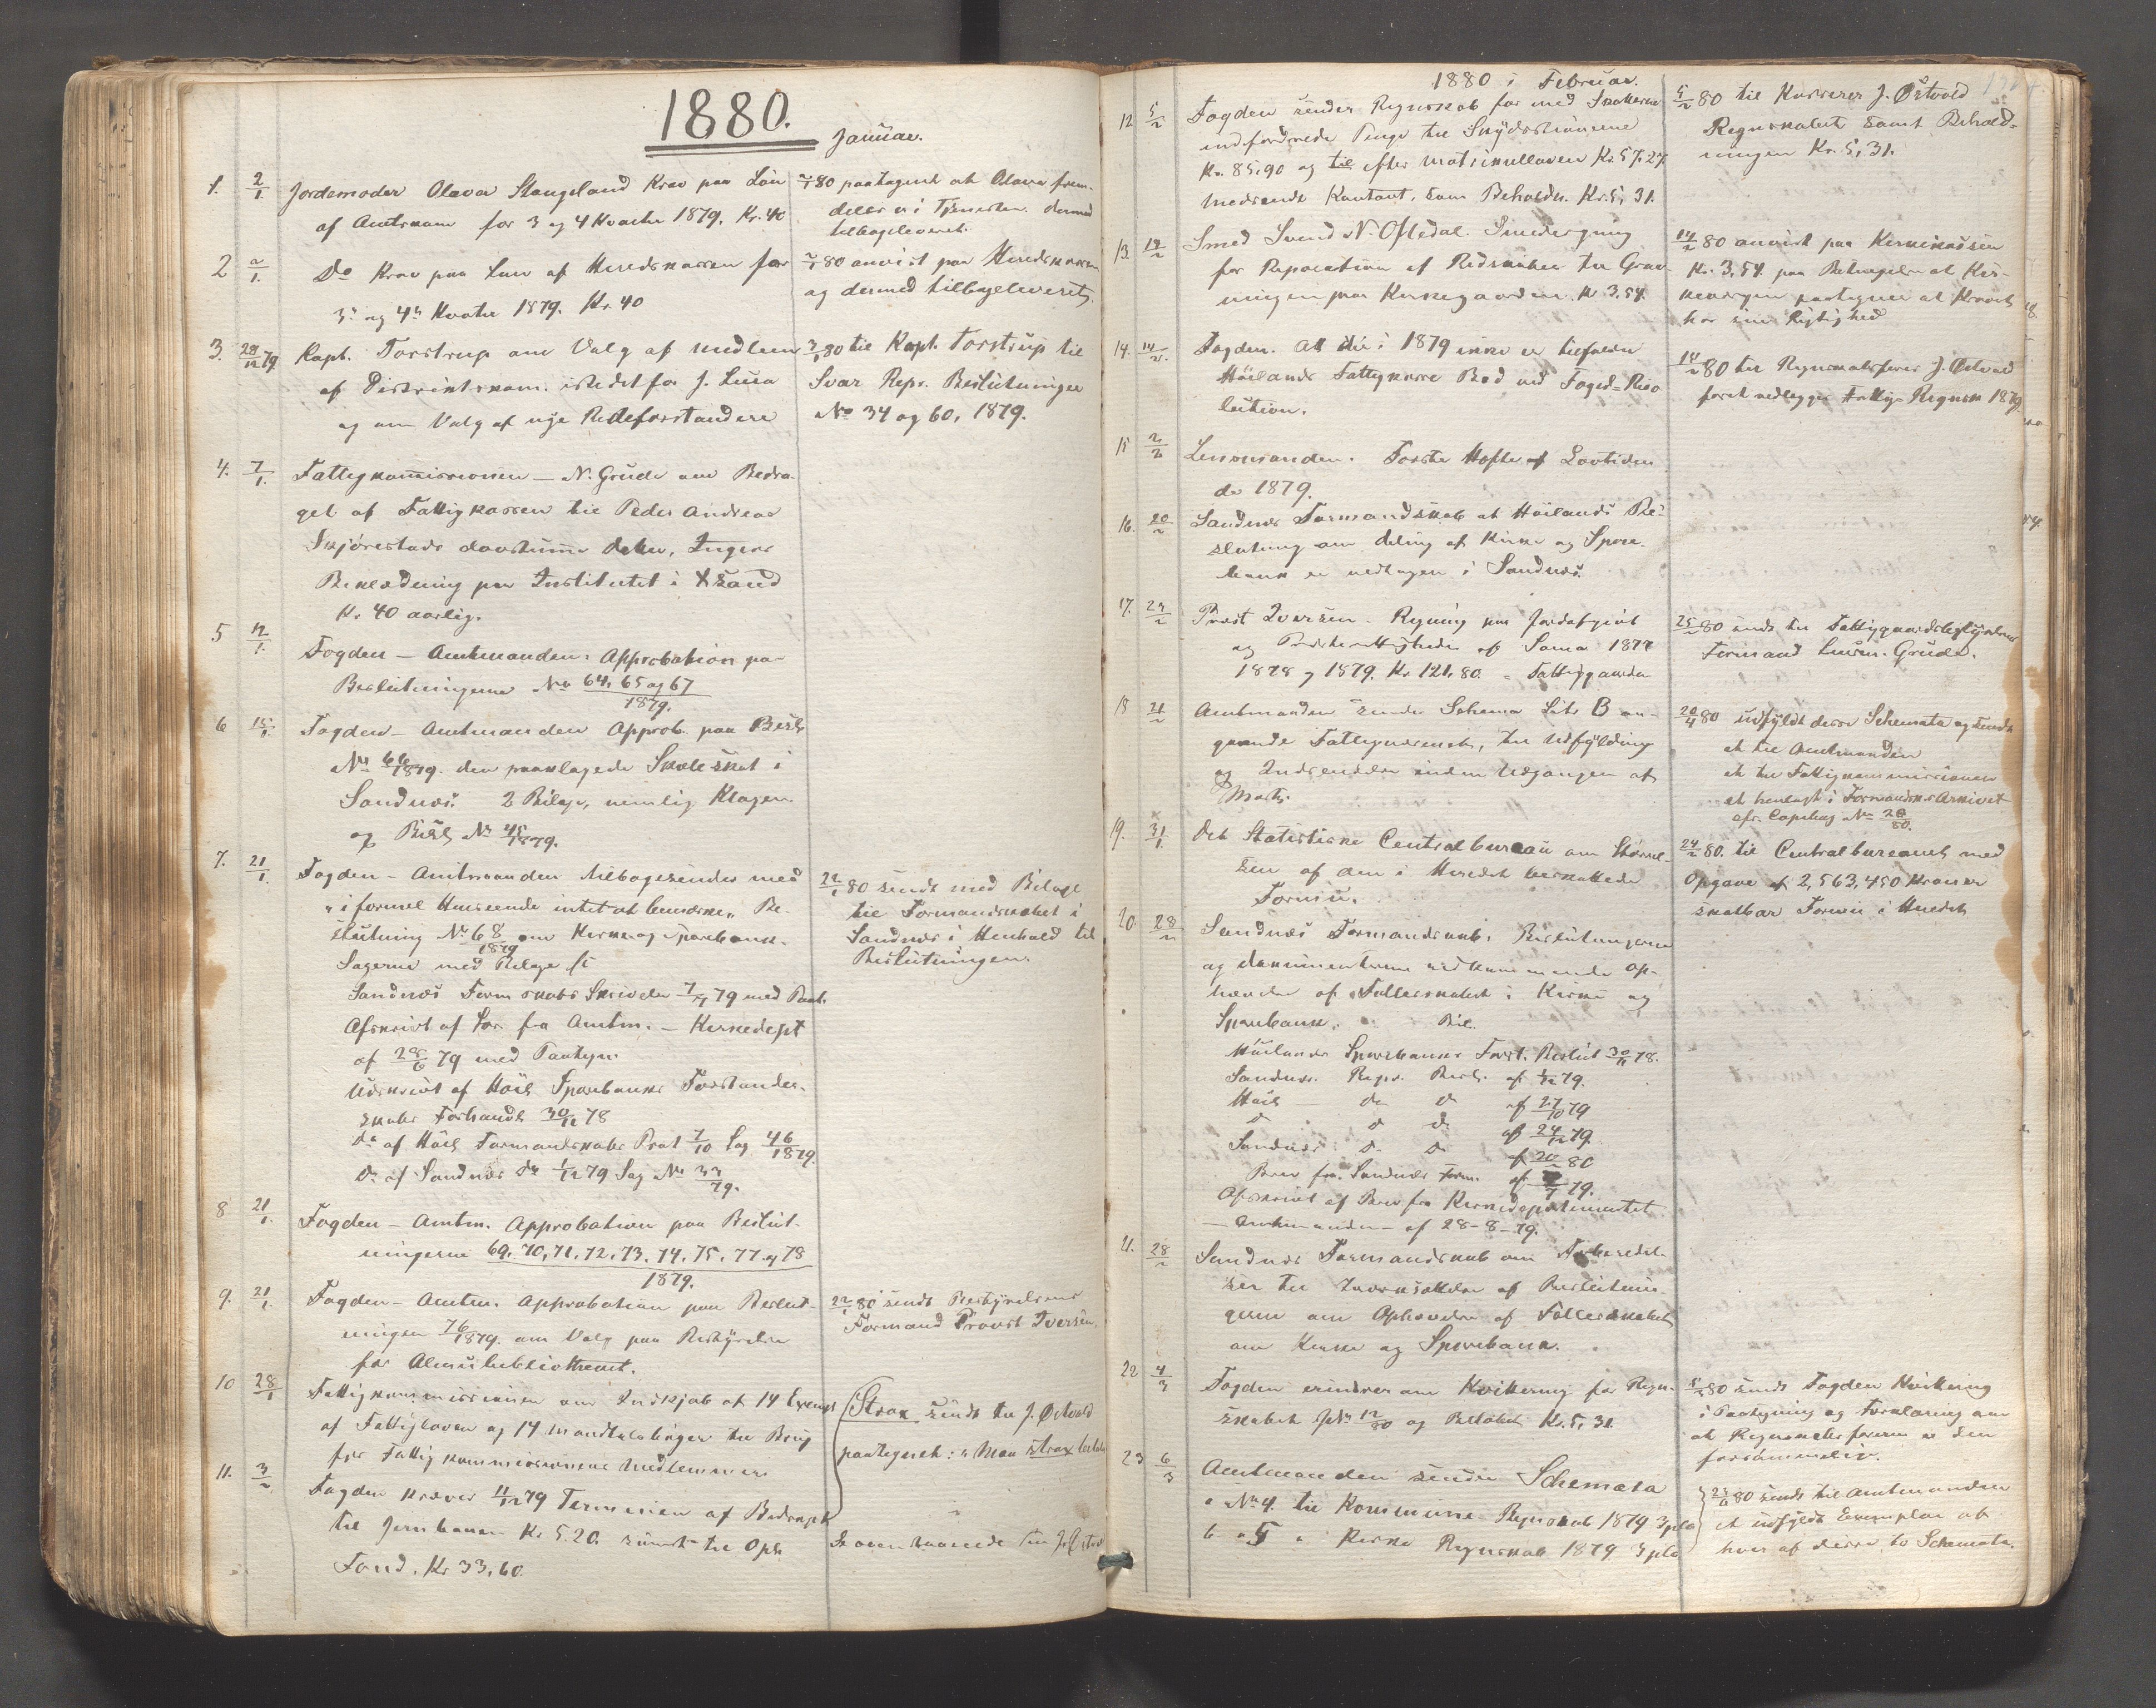 1880.
Januar.
1. 2/1. Jordemoder Olava Stangeland Krav paa Løn
af Amtskom for 3 og 4 Kvartal 1879. Kr. 40
2/1 80 paategnet at Olava frem-
deles er i Tjenesten. dermed
tilbageleveret.
2 2/1. Do Krav paa Løn af Heredskassen for
3die og 4de Kvartal 1879. Kr. 40
2/1 80 anvist paa Heredskassen
og dermed tilbageleveret.
3. 29/12 79. Kapt. Torstrup om Valg af medlem
af Distriktskom. istedetfor J. Lura
og om Valg af nye Rodeforstandere
3/1 80 til Kapt. Torstrup til
Svar Repr. Beslutninger
No 34 og 60, 1879.
4. 7/1. Fattigkommissionen – N. Grude om Bedra-
get af Fattigkassen til Peder Andreas
Skjørestads døvstumme datter, Ingers
Beklædning paa Institutet i Xsand
Kr. 40 aarlig.
5 12/1. Fogden – Amtmanden: Approbation paa
Beslutningerne No 64, 65 og 67
1879.
6 15/1. Fogden – Amtmanden Approb. paa Besl.
No 66/1879. den paaklagede Skoleskat i
Sandnæs. 2 Bilage, nemlig Klagen
og Besl. No 45/1879.
7. 21/1. Fogden – Amtmanden tilbagesender med
"i formel Henseende intet at bemærke" Be-
slutning No 68/1879 om Kirke og Sparebank-
Sagerne med Bilage
Sandnæs Formskabs Skrivelse 7/ 79 med Paat.
Afskrivt af Skr. fra Amtm. – Kirkedept
af 28/6 79 med Paategn.
Udskrivt af Høil. Sparebanks Forstander-
skabs Forhandl. 30/11 78
do af Høil. Formandskabs Prot 7/10 Sag 46/1879.
Do af Sandnæs do 1/12 79 Sag No 33/79.
22/1 80 sendt med Bilage
til Formandskabet i
Sandnæs i Henhold til
Beslutningen.
8 21/1. Fogden – Amtm. Approbation paa Beslut-
ningerne 69, 70, 71, 72, 73, 74, 75, 77 og 78
1879.
9. 21/1. Fogden – Amtm. Approbation paa Beslut-
ningen 76/1879. om Valg paa Bestyrelse
for Almuebibliotheket.
22/1 80 sendt Bestyrelsens
Formand Provst Iversen.
10 28/1 Fattigkommissionen om Indkjøb af 14 Exempl
af Fattigloven og 14 Mandtalsbøger til Brug
for Fattigkommissionens Medlemmer
Strax sendt til J. Østvold
paategnet: "Maa strax betales
11. 3/2 Fogden kræver 11/12 79 Terminen af Bidraget
til Jernbanen Kr. 5.20. samt til Opl.
Fond. Kr 33,60.
Ligesom ovenstaaende til J. Østvold
1880 i Februar.
12 5/2 Fogden sender Regnskab for med Skatterne
indfordrede Penge til Skydsstationerne
Kr. 85,90 og til efter matrikulloven Kr. 57,27.
medsendt Kontant, som Beholdn. Kr. 5,31.
5/2 80 til Kasserer J. Østvold
Regnskabet samt Behold-
ningen Kr. 5,31.
13. 12/2 Smed Svend N. Oftedal. Smedregning
for Reparation af Redskaber til Grav-
ningen paa Kirkegaarden Kr 3.54.
14/2 80 anvist paa Kirkekassen
Kr. 3.54 paa Betingelse at Kir-
keværgen paategner at Kravet
har sin Rigtighed
14. 14/2. Fogden. At der i 1879 ikke er tilfalden
Høilands Fattigkasse Bod ved Foged-Reso
lution.
14/2 80 til Regnskabsfører J. Østvold
foret vedlægges Fattig-Regnsk 1879
15 2/2 Lensmanden. Første Hefte af Lovtiden
de 1879.
16. 20/2 Sandnæs Formandskab at Høilands Be-
slutning om deling af Kirke og Spare-
bank er vedtagen i Sandnæs.
17. 23/2 Provst Iversen – Regning paa Jordafgivt
og Præsterettigheder af Soma 1877
1878 og 1879. Kr. 121,80. – Fattiggaarden
25/2 80 sendt til Fattiggaardsbestyrelsens
Formand Grude.
18 21/2 Amtmanden sender Schema Litr B an-
gaaende Fattigvæsenet, til Udfylding
og Indsendelse inden Udgangen af
Marts.
20/4 80 udfyldt disse Schemata og sendt
et til Amtmanden
et til Fattigkommissionen
et henlagt i Formandsk. Arkivet
cfr. Copibog No 28/80.
19. 31/1. Det Statistiske Centralbureau om Størrel-
sen af den i Heredet beskattede
Formue.
24/2 80. til Centralbureauet med
Opgave af 2,563,450 Kroner
skatbar Formue i Heredet
20. 28/2 Sandnæs Formandskab. Beslutningerne
og dokumenterne vedkommende Op-
hævelse af Fællesskabet i Kirke og
Sparebank. Bil.
Høilands Sparebanks Forst. Beslut 30/11 78.
Sandnæs. Repr. Besl. af 1/12 79.
Høil do do af 27/10 79
do do do af 24/12 79.
Sandnæs do do af 20/2 80
Brev fra Sandnæs Form. af 79.
Afskrivt af Brev fra Kirkedepartementet
– Amtmanden – af 28-8-79.
21. 28/2 Sandnæs Formandskab om Forberedel-
ser til Iværksættelse af Beslutnin-
gerne om Ophævelse af Fællesskabet
om Kirke og Sparebank.
22 4/3 Fogden erindrer om Kvittering for Regn-
skabet JNo 12/80 og Beløbet Kr. 5,31.
5/3 80 sendt Fogden Kvittering
i Paategning og Forklaring om
at Regnskabsføreren er den
forsømmelige.
23 6/3 Amtmanden sender Schemata
a No 4. til Kommune Regnskab 1879 3 pla
b " 5 " Kirke Regnskab 1879 3 pla
23/ 80 sendt til Amtmanden
et udfyldt Exemplar af
hver af disse to Schemata.